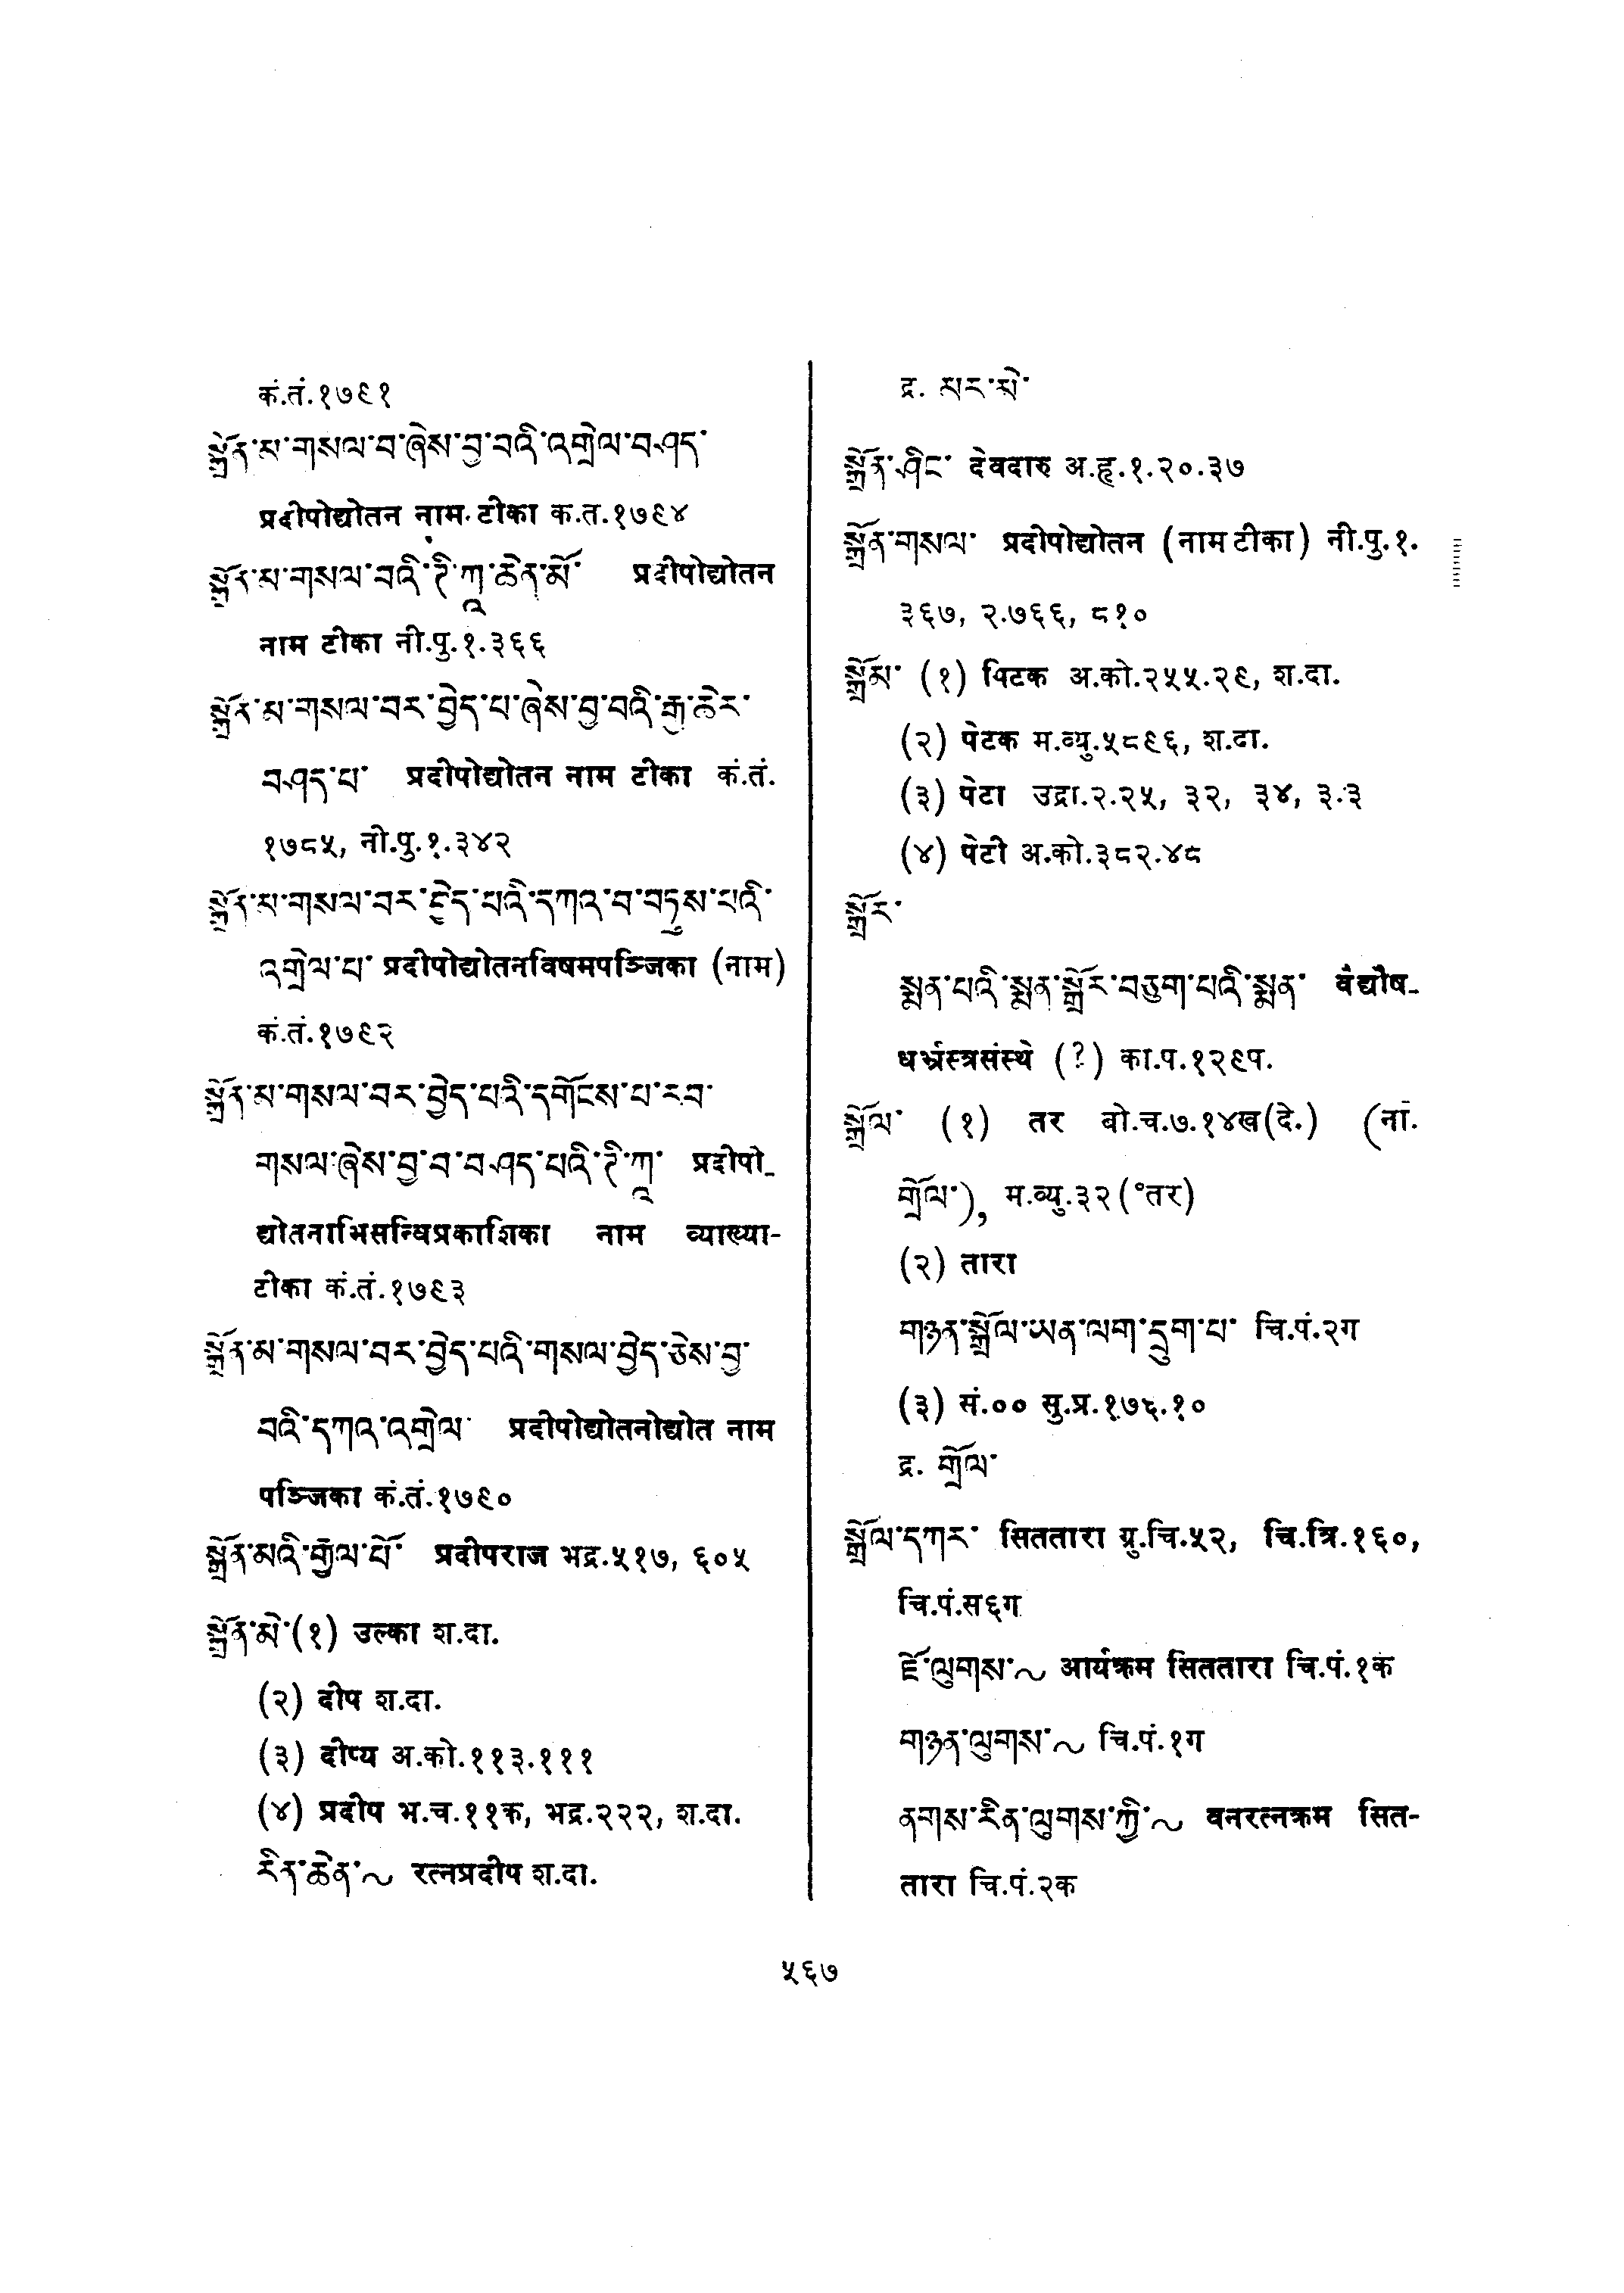 कं.तं.१७९१
སྒྲོན་མ་གསལ་བ་ཞེས་བྱ་བའི་འགྲེལ་བཤད་
प्रदीपोद्योतन नाम टीका क.त.१७९४
སྒྲོན་མ་གསལ་བའི་ཊི་ཀཱ་ཆེན་མོ་ प्रदीपोद्योतन
नाम टीका नी.पु.१.३६६
སྒྲོན་མ་གསལ་བར་བྱེད་པ་ཞེས་བྱ་བའི་རྒྱ་ཆེར་
བཤད་པ་ प्रदीपोद्योतन नाम टीका कं.तं.
१७८५, नी.पु.१.३४२
སྒྲོན་མ་གསལ་བར་བྱེད་པའི་དཀའ་བ་བཏུས་པའི་
འགྲེལ་པ་ प्रदीपोद्योतनविषमपञ्जिका (नाम)
कं.तं.१७९२
སྒྲོན་མ་གསལ་བར་བྱེད་པའི་དགོངས་པ་རབ་
གསལ་ཞེས་བྱ་བ་བཤད་པའི་ཊི་ཀཱ་ प्रदीपो-
द्योतनाभिसन्धिप्रकाशिका नाम व्याख्या-
टीका कं.तं.१७९३
སྒྲོན་མ་གསལ་བར་བྱེད་པའི་གསལ་བྱེད་ཅེས་བྱ་
བའི་དཀའ་འགྲེལ་ प्रदीपोद्योतनोद्योत नाम
पञ्जिका कं.तं.१७९०
སྒྲོན་མའི་རྒྱལ་པོ་ प्रदीपराज भद्र.५१७, ६०५
སྒྲོན་མེ་(१) उल्का श.दा.
(२) दीप श.दा.
(३) दीप्य अ.को.११३.१११
(४) प्रदीप भ.च.११क, भद्र.२२२, श.दा.
རིན་ཆེན་~ रत्नप्रदीप श.दा.
द्र. མར་མེ་
སྒྲོན་ཤིང་ देवदारु अ.हृ.१.२०.३७
སྒྲོན་གསལ་ प्रदीपोद्योतन (नाम टीका) नी.पु.१.
३६७, २.७६६, ८१०
སྒྲོམ་ (१) पिटक अ.को.२५५.२९, श.दा.
(२) पेटक म.व्यु.५८९६, श.दा.
(३) पेटा उद्रा.२.२५, ३२, ३४, ३.३
(४) पेटी अ.को.३८२.४८
སྒྲོར་
སྨན་པའི་སྨན་སྒྲོར་བཅུག་པའི་སྨན་ वैद्यौष-
(?) का.प.१२९प.
སྒྲོལ་ (१) तर बो.च.७.१४ख(दे.) (नां.
གྲོལ་), म.व्यु.३२(°तर)
(२) तारा
གཉན་སྒྲོལ་ཡན་ལག་དྲུག་པ་ चि.पं.२ग
(३) सं.०० सु.प्र.१७६.१०
द्र. གྲོལ་
སྒྲོལ་དཀར་ सिततारा ग्रु.चि.५२, चि.त्रि.१६०,
चि.पं.स६ग
ཇོ་ལུགས་~ आर्यक्रम सिततारा चि.पं.१क
གཉན་ལུགས་~ चि.पं.१ग
ནགས་རིན་ལུགས་ཀྱི་~ वनरत्नक्रम सित-
तारा चि.पं.२क
५६७